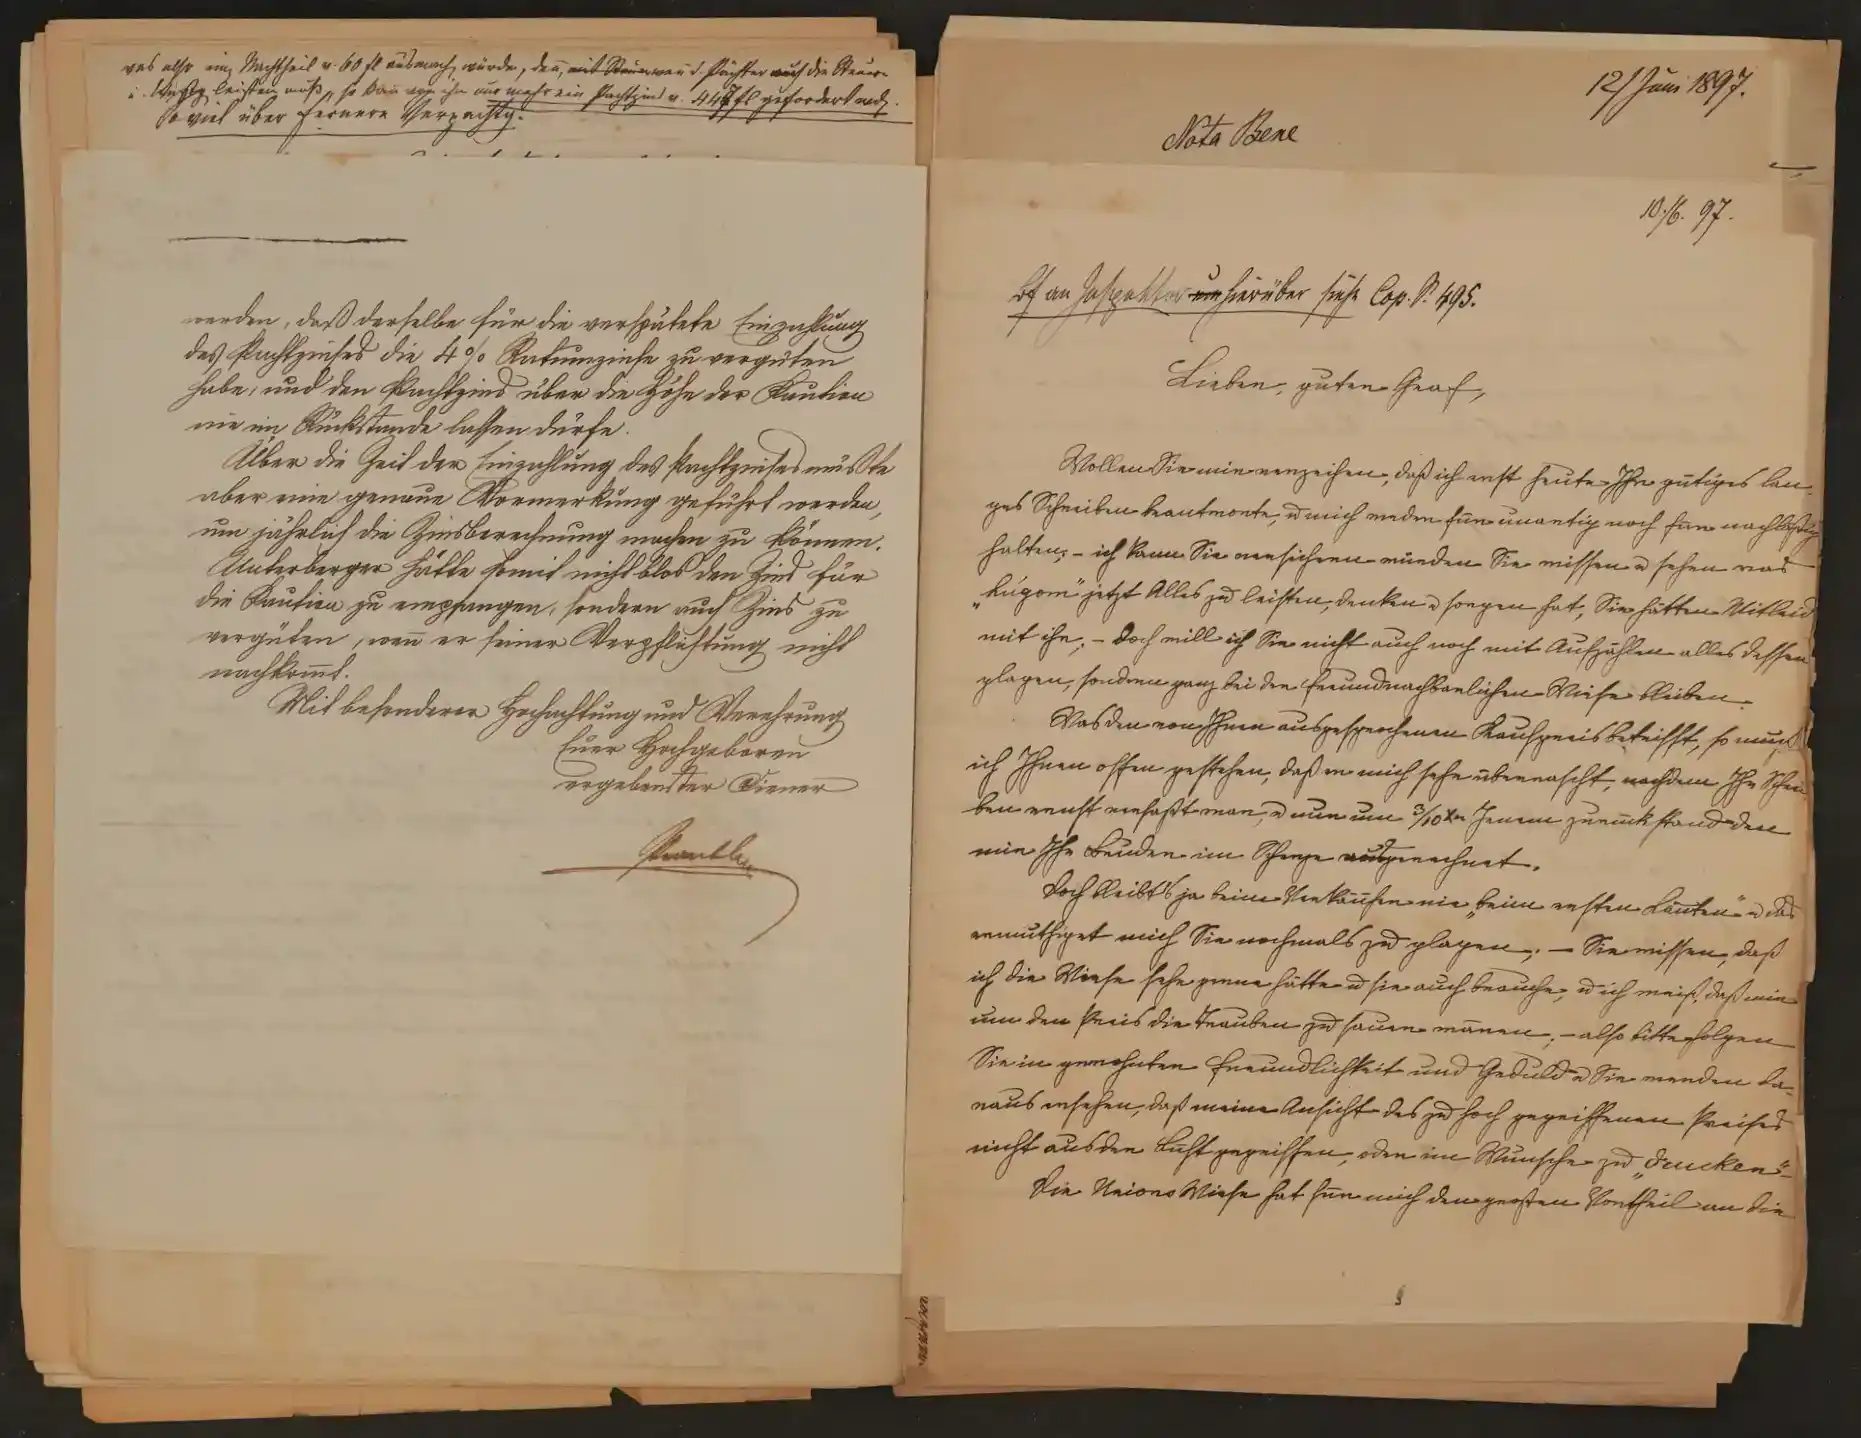 was also ein Nachtheil v. 60 fl ausmach. würde, den̄, wen̄ d. Pächter auch die Steuern
leisten muß, so kan̄ von ihm nur mehr ein Pachtzins v. 447 fl gefordert wd.
So viel über fernere Verpachtg.
werden, daß derselbe für die verspätete Einzahlung
des Pachtzinses die 4% zu vergüten
habe, und den Pachtzins über die Höhe der Kaution
nie im Rückstande lassen dürfe.
Über die Zeit der Einzahlung des Pachtzinses müßte
aber eine genaue Vormerkung geführt werden,
um jährlich die Zinsberechnung machen zu können.
Unterberger hätte somit nicht blos den Zins für
die Kaution zu empfangen, sondern auch Zins zu
vergüten, wen̄ er seiner Verpflichtung nicht
nachkom̄t.
Mit besonderer Hochachtung und Verehrung
Euer Hochgeboren
ergebenster Diener
12/ Juni 1897.
Nota Bene
10./6. 97.
Bf an Inspektor hierüber siehe Cop. S. 495.
Lieber, guter Graf,
Wollen Sie mir verzeihen, daß ich erst heute Ihr gütiges lan-
ges Schreiben beantworte, u mich weder für unartig noch für nachläßig
halten; – ich kann Sie versichern würden Sie wissen u sehen was
jetzt Alles zu leisten, denken u sorgen hat, Sie hätten Mitleid
mit ihr; – Doch will ich Sie nicht auch noch mit Aufzählen alles dessen
plagen, sondern ganz bei der freundnachbarlichen Wiese bleiben.
Was den von Ihnen ausgesprochenen Kaufpreis betrifft, so muß
ich Ihnen offen gestehen, daß er mich sehr überrascht, nachdem Ihr Schrei-
ben ernst verfaßt war, u nun um 3/10 Jenem zurückstand den
mir Ihr Bruder im Scherze ausgerechnet.
Doch bleibt's ja beim Verkaufen nie „beim ersten Läuten" u das
ermuthiget mich Sie nochmals zu plagen; – Sie wissen, daß
ich die Wiese sehr gerne hätte u sie auch brauche, u ich weiß, daß mir
um den Preis die Trauben zu sauer wären; – also bitte folgen
Sie in gewohnter Freundlichkeit und Geduld u Sie werden da-
raus ersehen, daß meine Ansicht des zu hoch gegriffenen Preises
nicht aus der Luft gegriffen, oder im Wunsche zu „drucken" –
Die Unions Wiese hat für mich den großen Vortheil an die